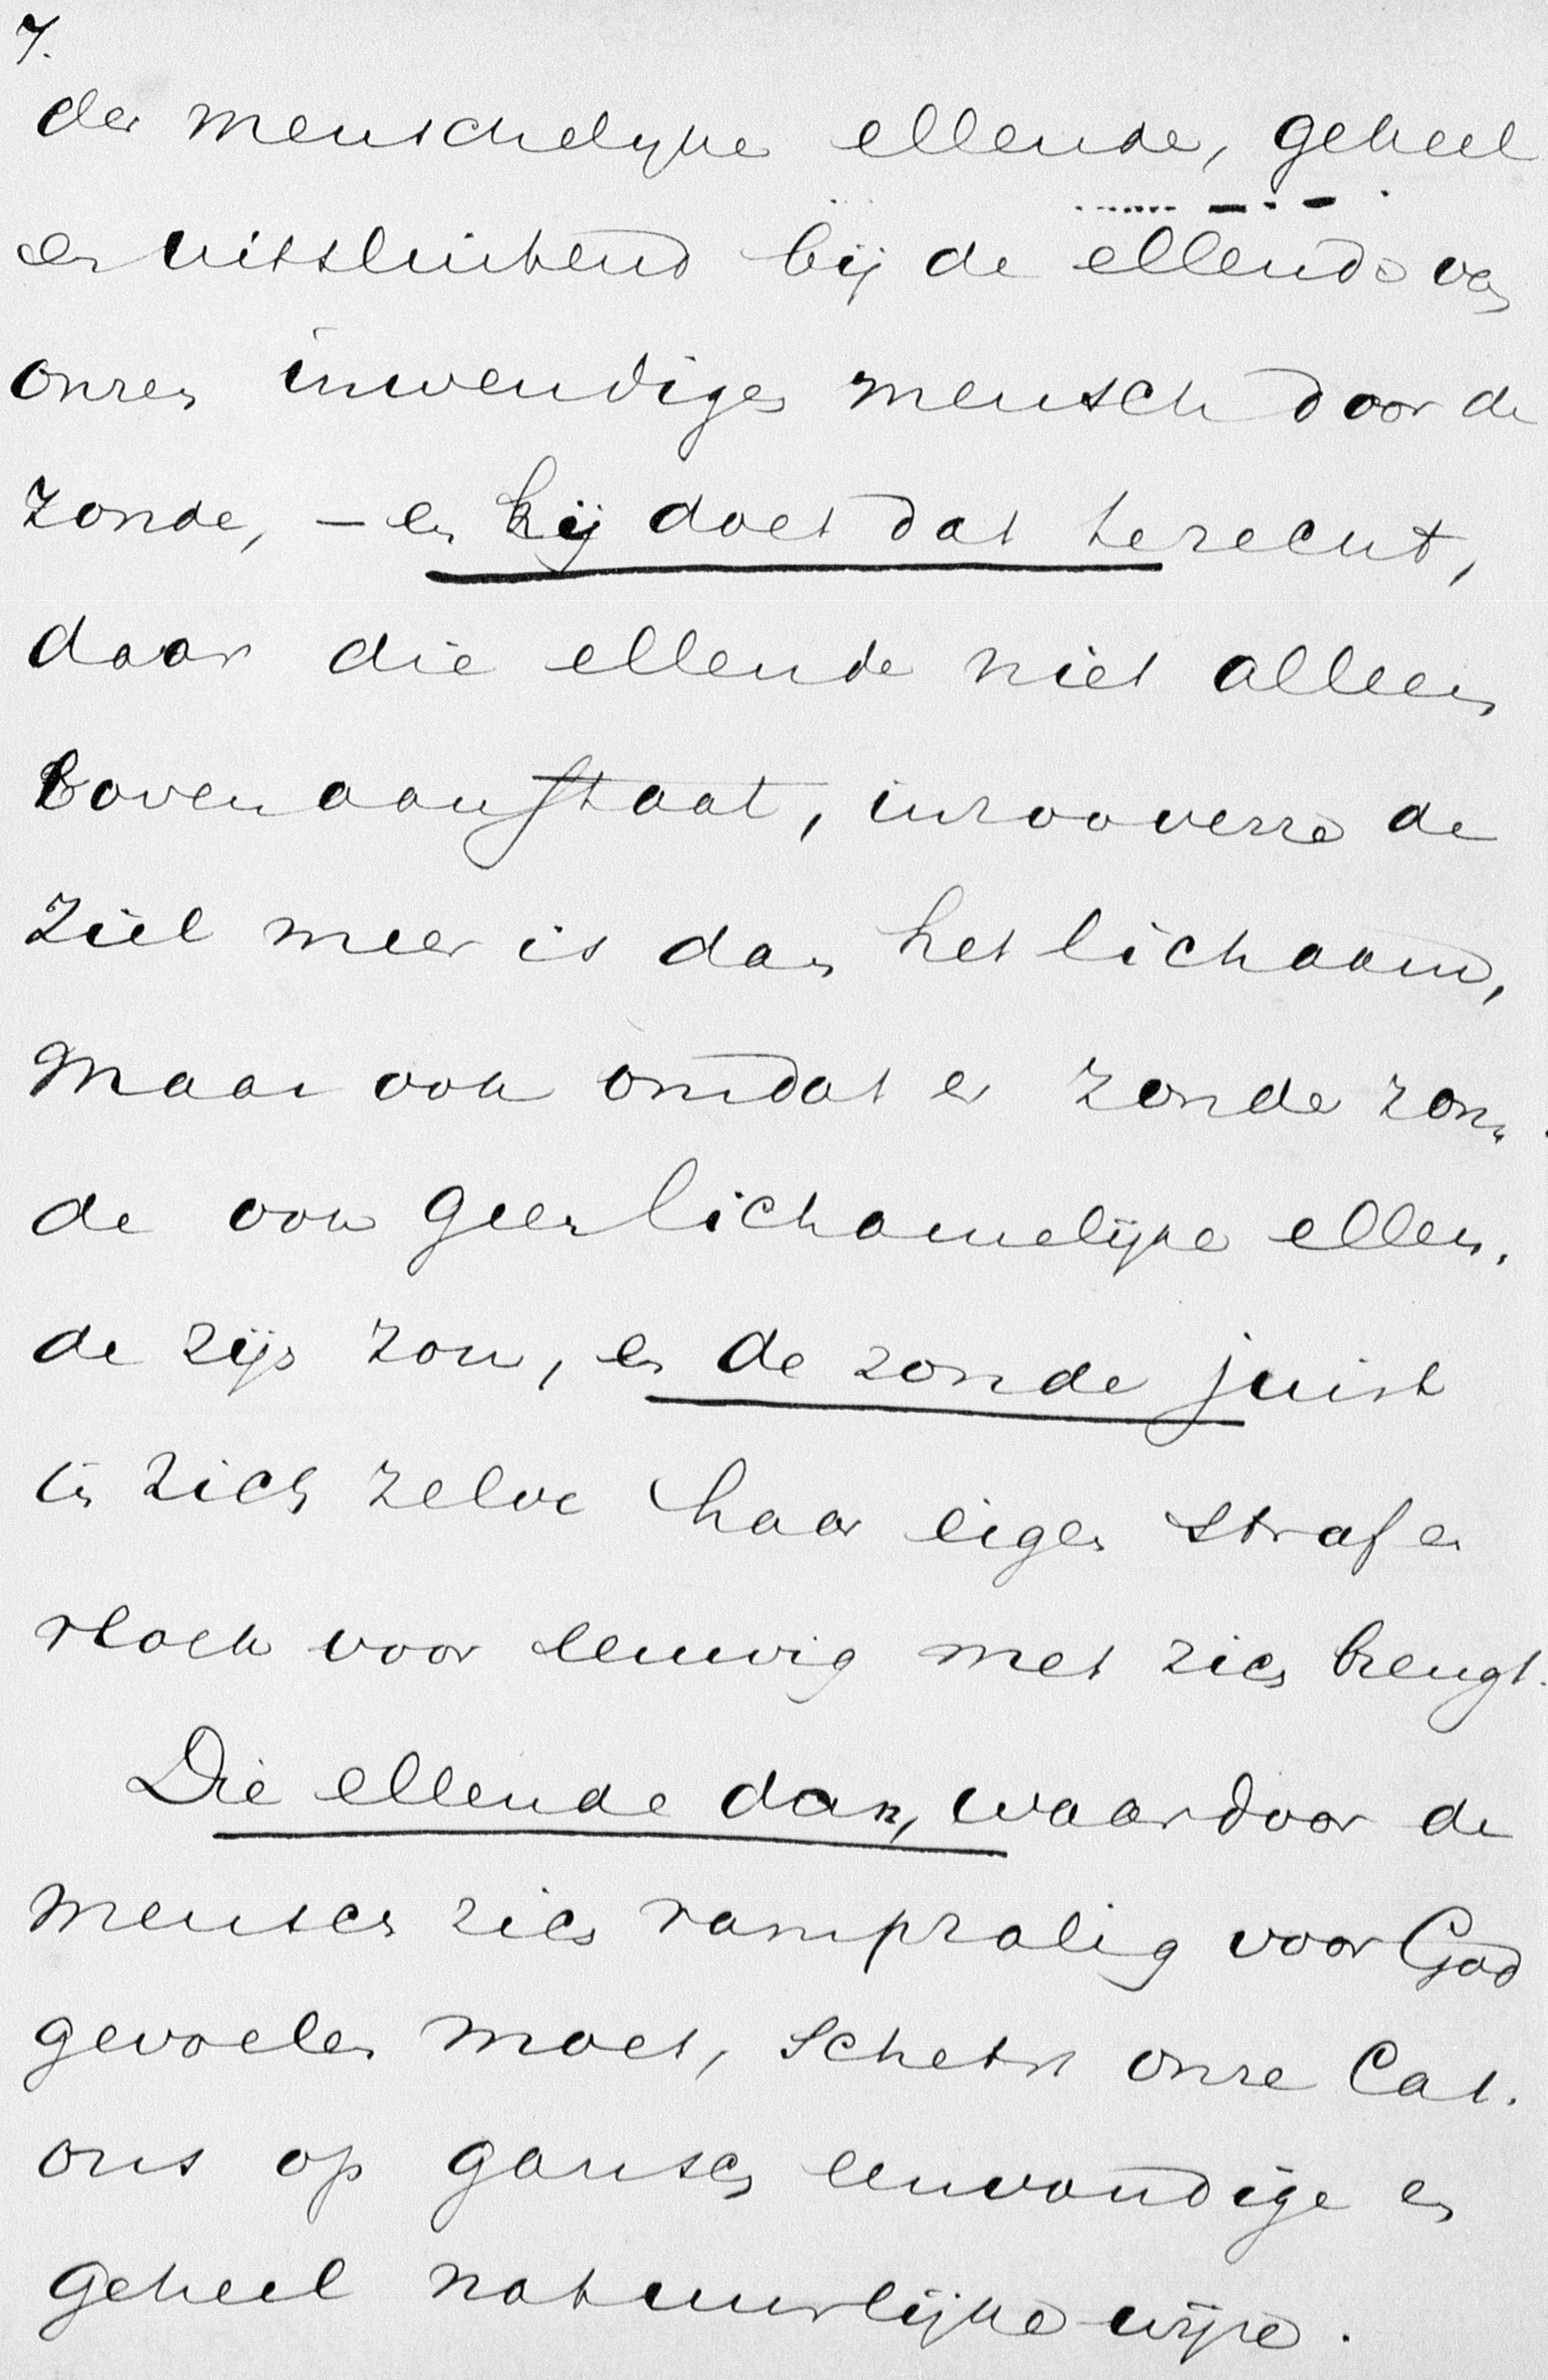 7.
der menschelyke ellende, geheel
en uitsluitend bij de ellende van
onzen inwendigen mensch door de
zonde, – en hij doet dat terecht,
daar die ellende niet alleen
bovenaan staat, inzooverre de
ziel meer is dan het lichaam,
maar ook omdat er zonder zon-
de ook geen lichamelijke ellen-
de zijn zou, en de zonde juist
in zich zelve haar eigen straf en
vloek voor eeuwig met zich brengt.
Die ellende dan, waardoor de
mensch zich rampzalig voor God
gevoelen moet, schetst onze Cat.
ons op gansch eenvoudige en
geheel natuurlijke wijze.